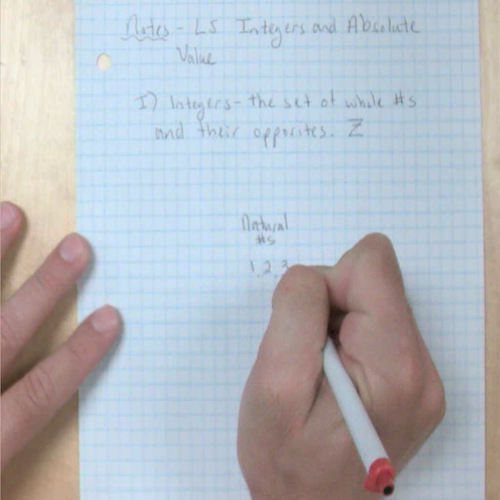 Notes - L5 Integers and Absolute
Value
I) Integers - the set of whole #s
and their opposites. Z
Natural
#s
1, 2, 3